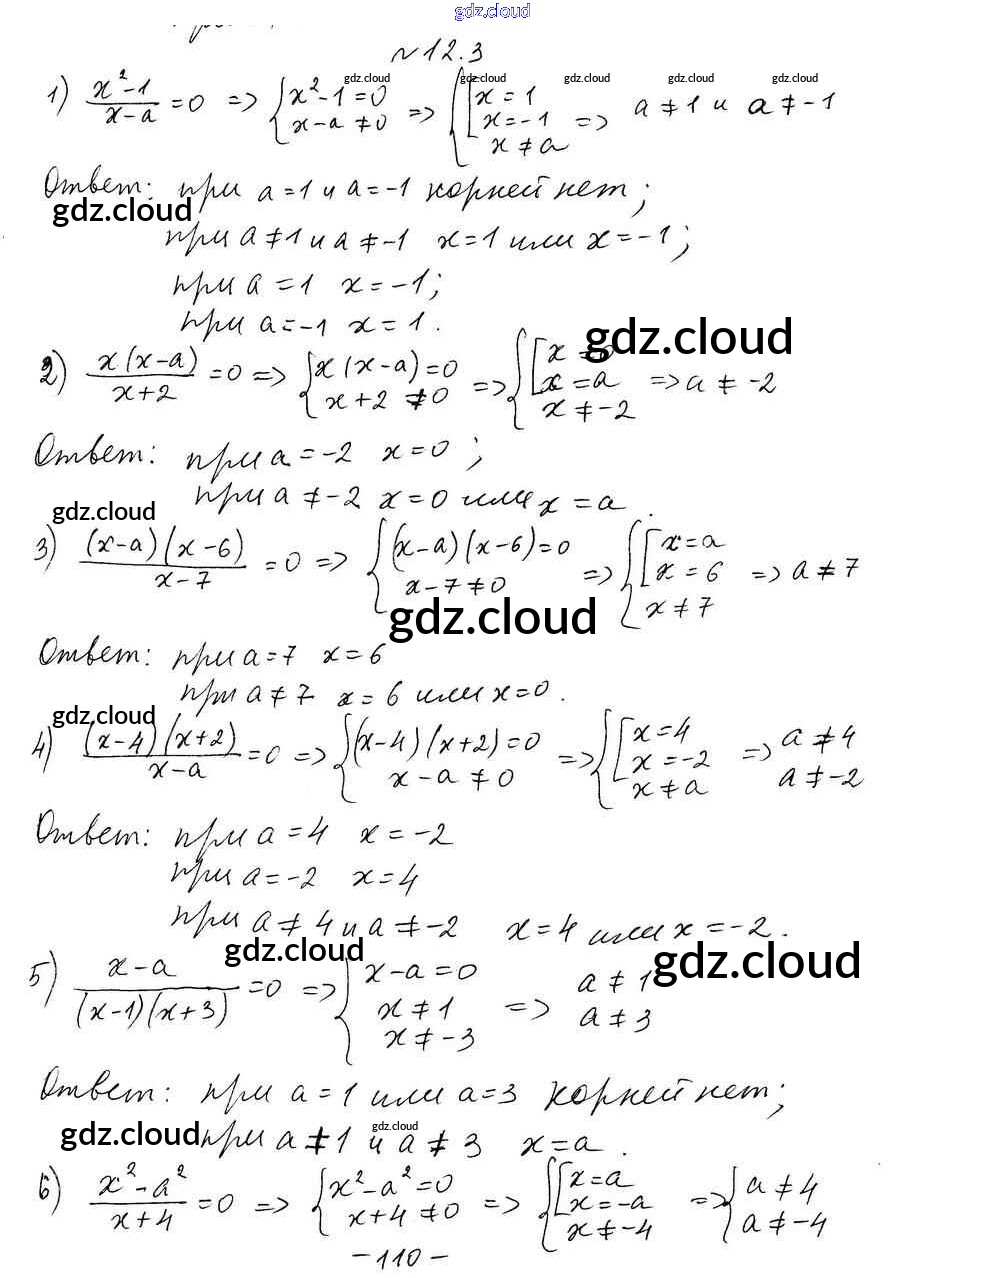 gdz.cloud
N 12.3
1) (x²-1)/(x-a) = 0 => { x²-1=0, x-a≠0 => { [ x=1, x=-1, x≠a => a≠1 и a≠-1
gdz.cloud gdz.cloud gdz.cloud gdz.cloud gdz.cloud
Ответ: при a=1 и a=-1 корней нет;
gdz.cloud
при a≠1 и a≠-1 x=1 или x=-1;
при a=1 x=-1;
при a=-1 x=1.
gdz.cloud
2) x(x-a)/(x+2) = 0 => { x(x-a)=0, x+2≠0 => { [ x=0, x=a, x≠-2 => a≠-2
Ответ: при a=-2 x=0;
при a≠-2 x=0 или x=a.
gdz.cloud
3) (x-a)(x-6)/(x-7) = 0 => { (x-a)(x-6)=0, x-7≠0 => { [ x=a, x=6, x≠7 => a≠7
gdz.cloud
Ответ: при a=7 x=6
при a≠7 x=6 или x=0.
gdz.cloud
4) (x-4)(x+2)/(x-a) = 0 => { (x-4)(x+2)=0, x-a≠0 => { [ x=4, x=-2, x≠a => a≠4, a≠-2
Ответ: при a=4 x=-2
при a=-2 x=4
при a≠4 и a≠-2 x=4 или x=-2.
gdz.cloud gdz.cloud
5) (x-a)/((x-1)(x+3)) = 0 => { x-a=0, x≠1, x≠-3 => a≠1, a≠3
Ответ: при a=1 или a=3 корней нет;
gdz.cloud gdz.cloud
при a≠1 и a≠3 x=a.
6) (x²-a²)/(x+4) = 0 => { x²-a²=0, x+4≠0 => { [ x=a, x=-a, x≠-4 => { a≠4, a≠-4
-110-